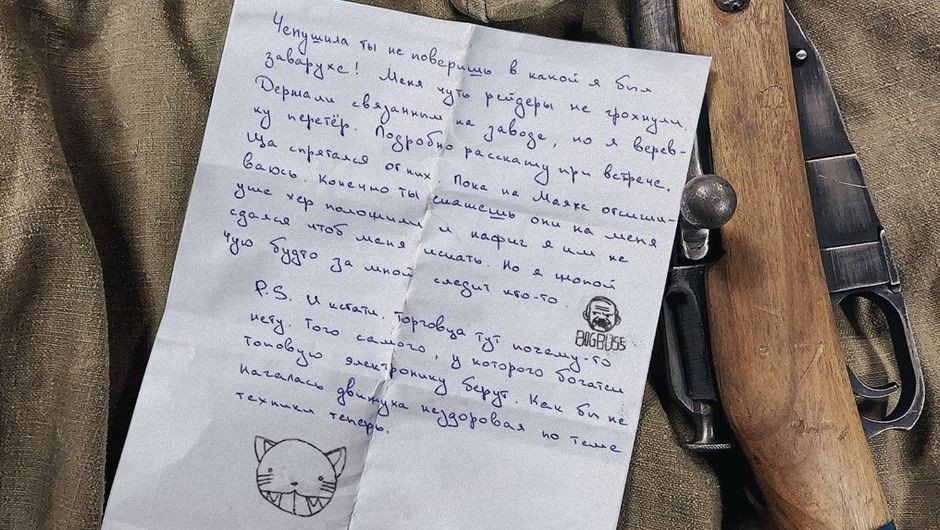 Чепушила ты не поверишь в какой я был
заварухе! Меня чуть рейдеры не грохнули.
Держали связанним на заводе, но я верев-
ку перетёр. Подробно расскажу при встрече.
Ща спрятался от них. Пока на Маяке отсижи-
ваюсь. Конечно ты скажешь они на меня
уже хер положили и нафиг я им не
сдался чтоб меня искать. Но я жопой
чую будто за мной следит кто-то.
BIGBOSS
P.S. И кстати, торговца тут почему-то
нету. Того самого, у которого богатеи
топовую электронику берут. Как бы не
началась движуха нездоровая по теме
техники теперь.